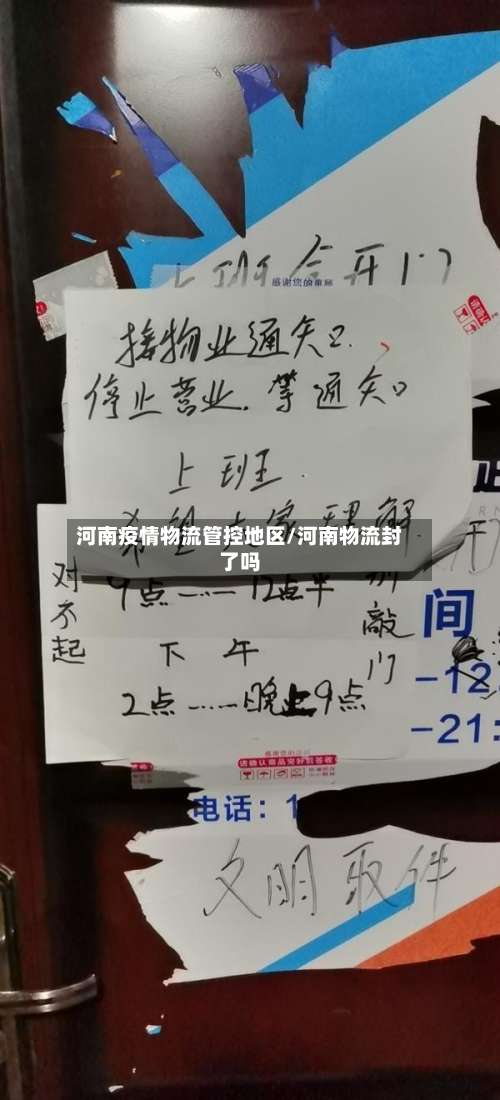 上班会开门
感谢您的惠顾
接物业通知
停止营业.等通知
上班.
希望大家理解
河南疫情物流管控地区/河南物流封
了吗
对不起
9点——12点半
别敲门
下 午
2点……晚上9点
间
-12
-21:
感谢您的惠顾
请确认商品完好前签收
电话: 1
文明取件